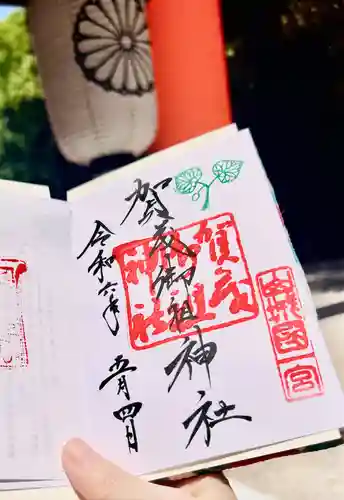 賀茂御祖神社
令和六年
五月四日
賀茂御祖神社
山城国一宮